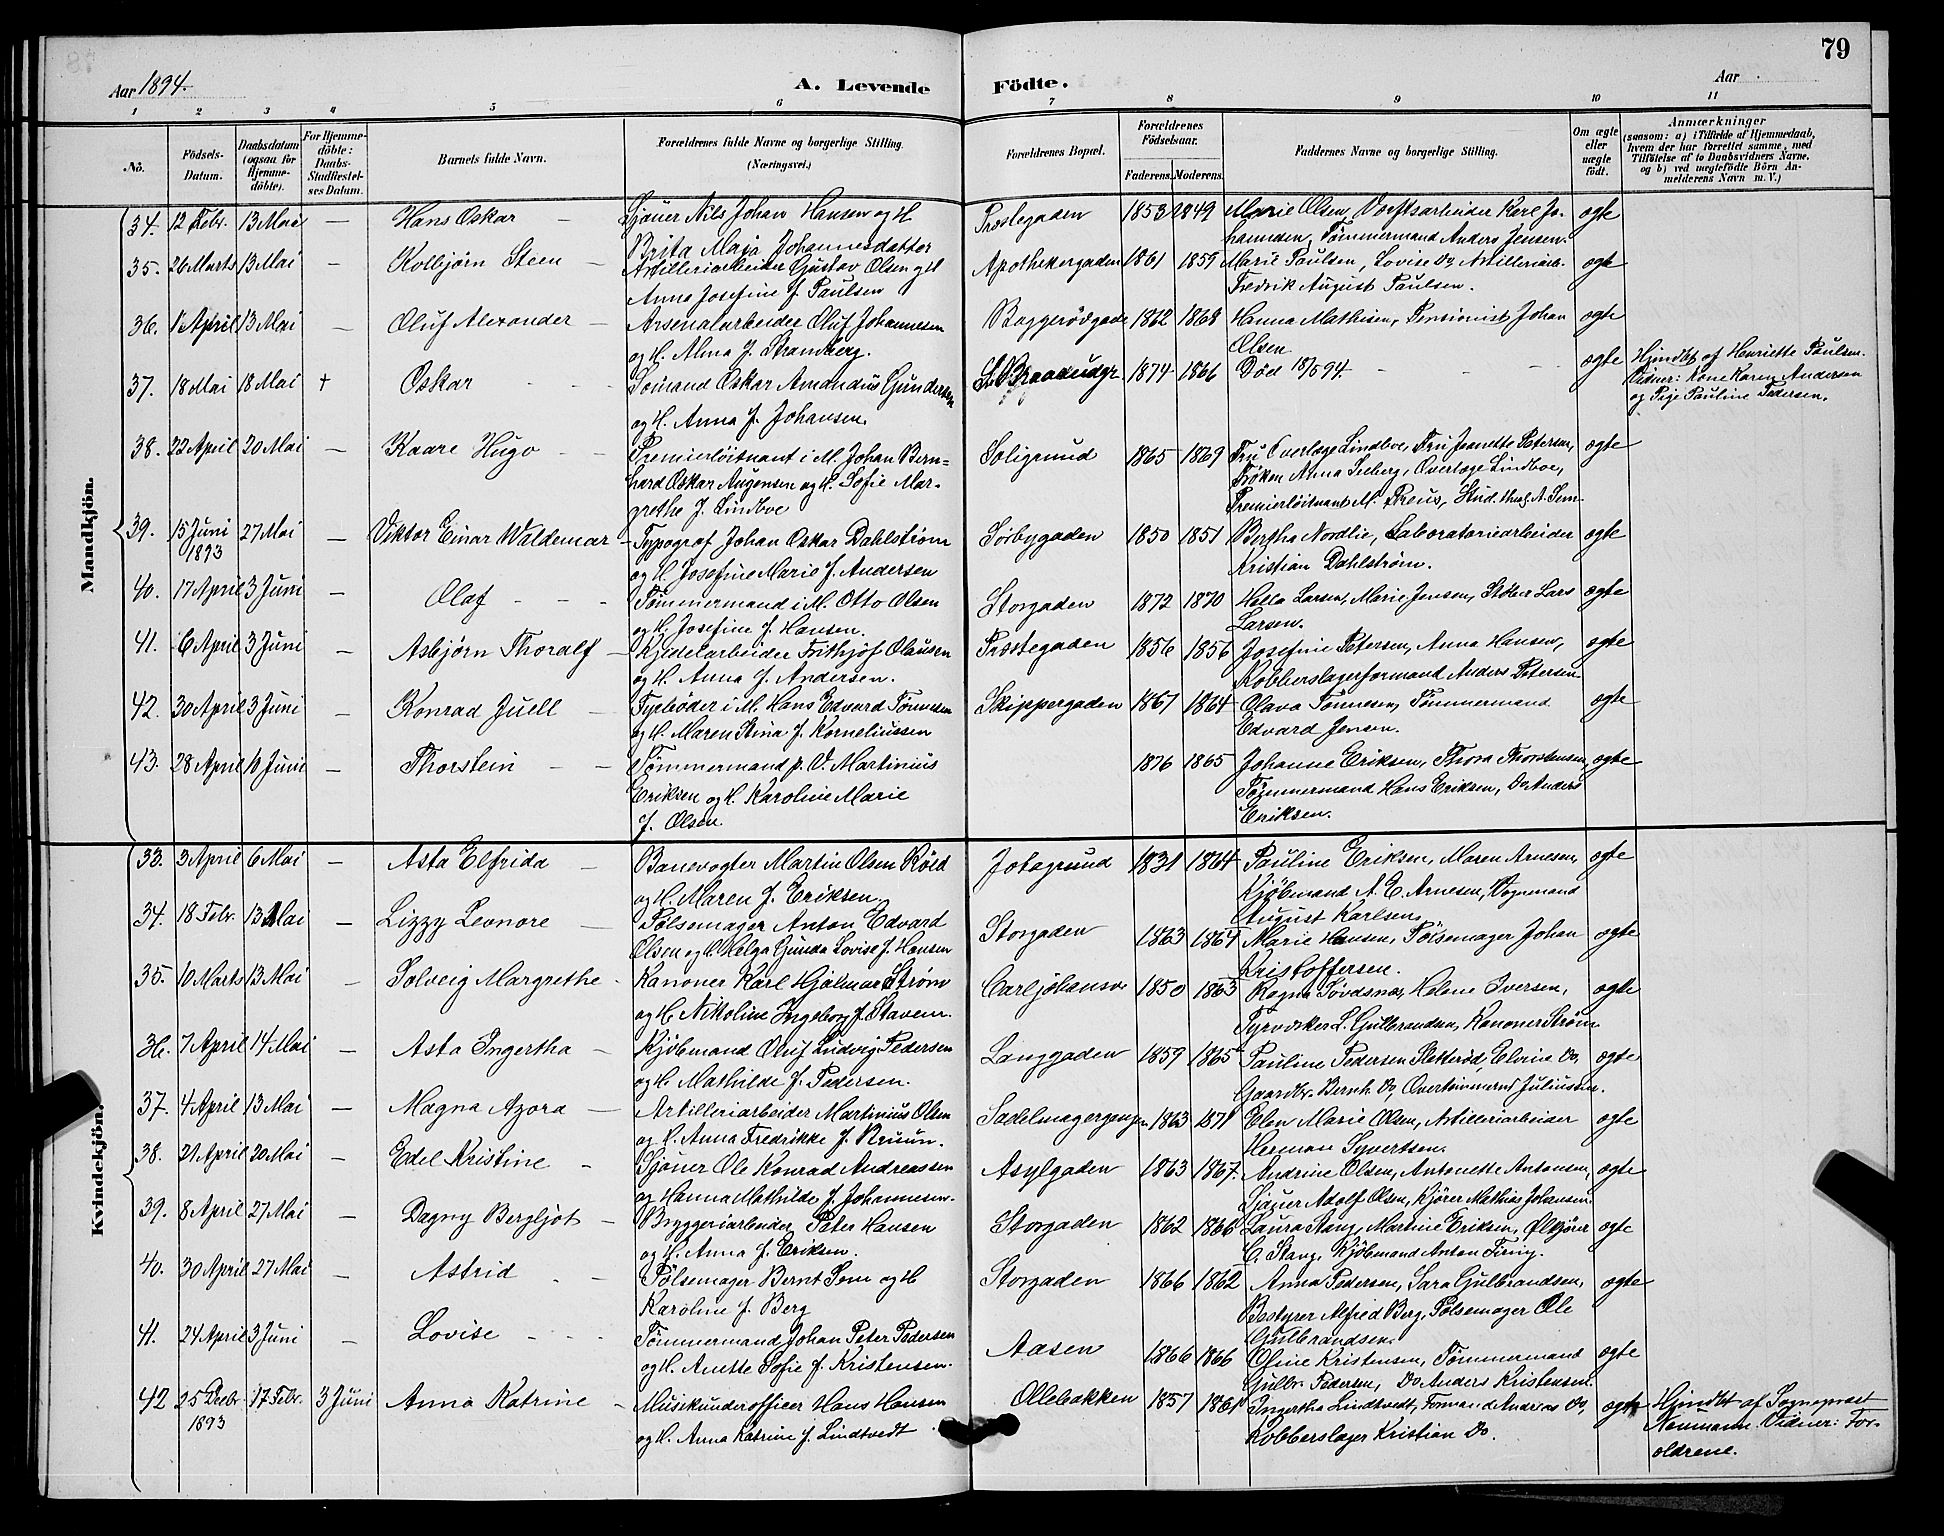 79
Aar 1894.
A. Levende Födte.
Aar
1 2 3 4 5 6 7 8 9 10 11
No.
Födsels-Datum.
Daabsdatum (ogsaa for Hjemme-döbte).
For Hjemme-döbte: Daabs-Stadfæstel-ses Datum.
Barnets fulde Navn.
Forældrenes fulde Navne og borgerlige Stilling. (Næringsvei.)
Forældrenes Bopæl.
Forældrenes Födselsaar.
Faderens. Moderens.
Faddernes Navne og borgerlige Stilling.
Om ægte eller uægte födt.
Anmærkninger
(saasom: a) i Tilfælde af Hjemmedaab, hvem der har forrettet samme, med Tilföielse af to Daabsvidners Navne, og b) ved uægtefödte Börn An-melderens Navn m. V.)
Mandkjön.
34. 12 Febr. 13 Mai — Hans Oskar — Sjauer Nils Johan Hansen og H Præstegaden 1853 1849 Marie Olsen, Værftsarbeider Karl Jo- ægte
Brita Maja Johannesdatter hannesen, Tømmermand Anders Jensen.
35. 26 Marts 13 Mai — Kolbjørn Steen — Artilleriarbeider Gustav Olsen og H Apothekergaden 1861 1859 Marie Paulsen, Lovise Do, Artilleriarb. ægte
Anna Josefine f. Paulsen Fredrik August Paulsen.
36. 16 April 13 Mai — Oluf Alexander — Arsenalarbeider Oluf Johannesen Baggerødgade 1862 1868 Hanna Mathisen, Pensionist Johan ægte
og H. Alma f. Stramberg. Olsen
37. 18 Mai 18 Mai + Oskar - - - Sømand Oskar Amandus Gundersen 1874 1866 Død 18/5 94. - - - ægte Hjmdbt af Henriette Paulsen.
og H. Anna f. Johansen. Vidner: Kone Karen Andersen
og Pige Pauline Pedersen.
38. 22 April 20 Mai — Kaare Hugo - - Premierløitnant i M. Johan Bern- Soligrund 1865 1869 Fru Overlæge Lindboe, Fru Jeanette Petersen, ægte
hard Oskar Augensen og H. Sofie Mar- Frøken Anna Seeberg, Overlæge Lindboe,
grethe f. Lindboe Premierløitnant M. Preus, Stud. theol. A. Sem-
39. 15 Juni 27 Mai — Viktor Einar Waldemar — Typograf Johan Oskar Dahlstrøm Sørbygaden 1850 1851 Bertha Nordlie, Laboratoriearbeider ægte
1893 og H. Josefine Marie f. Andersen Kristian Dahlstrøm.
40. 17 April 3 Juni — Olaf - - - Tømmermand i M. Otto Olsen Storgaden 1872 1870 Helia Larsen, Marie Jensen, Støber Lars ægte
og H. Josefine f. Hansen. Larsen.
41. 6 April 3 Juni — Asbjørn Thoralf — Kjedelarbeider Frithjof Olausen Præstegaden 1856 1856 Josefine Petersen, Anna Hansen, ægte
og H. Anna f. Andersen. Kobberslagerformand Anders Petersen
42. 30 April 3 Juni — Konrad Juell — Fyrbøder i M. Hans Edvard Tønnesen Skippergaden 1861 1864 Olava Tønnesen, Tømmermand ægte
og H. Maren Stina f. Korneliussen Edvard Jensen.
43. 28 April 10 Juni — Thorstein - - Tømmermand p. V. Martinius 1876 1865 Johanne Eriksen, Thora Thorstensen, ægte
Eriksen og H. Karoline Marie Tømmermand Hans Eriksen, Do Anders
f. Olsen. Eriksen.
Kvindekjön.
33. 3 April 6 Mai — Asta Elfrida — Banevogter Martin Olsen Røed Jotagrund 1831 1864 Pauline Eriksen, Maren Arnesen, ægte
og H. Maren f. Eriksen. Kjøbmand A. E. Arnesen, Vognmand
August Karlsen.
34. 18 Febr. 13 Mai — Lizzy Leonore — Pølsemager Anton Edvard Storgaden 1863 1864 Marie Hansen, Pølsemager Johan ægte
Olsen og H. Helga Gunda Lovise f. Hansen Kristoffersen.
35. 10 Marts 13 Mai — Solveig Margrethe - Kanoner Karl Hjalmar Strøm Carljohansv 1850 1863 Ragna Søvdsnæs, Helene Iversen, ægte
og H. Nikoline Ingeborg f. Stavem. Fyrvæsker L. Gulbrandsen, Kanoner Strøm
36. 7 April 14 Mai — Asta Ingertha — Kjøbmand Oluf Ludvig Pedersen Langgaden 1859 1865 Pauline Pedersen Sletterød, Elvine Do, ægte
og H. Mathilde f. Pedersen. Gaardbr. Bernh. Do, Overtømmermd Juliussen.
37. 4 April 13 Mai — Magna Azora — Artilleriarbeider Martinius Olsen Sadelmagergangen 1863 1871 Elen Marie Olsen, Artilleriarbeider ægte
og H. Anna Fredrikke f. Bruun. Herman Syvertsen.
38. 21 April 20 Mai — Edel Kristine — Sjauer Ole Konrad Andreassen Asylgaden 1863 1867. Andrine Olsen, Antonette Antonsen, ægte
og Hanna Mathilde f. Johannesen. Sjauer Adolf Olsen, Kjører Mathias Johansen.
39. 8 April 27 Mai — Dagny Bergljot — Bryggeriarbeider Peter Hansen Storgaden 1862 1866 Laura Stang, Martine Eriksen, Ølkjører ægte
og H. Anna f. Eriksen. C. Stang, Kjøbmand Anton Firing.
40. 30 April 27 Mai — Astrid - - Pølsemager Bernt Sem og H Storgaden 1866 1862 Anna Pedersen, Sara Gulbrandsen, ægte
Karoline f. Berg Bestyrer Alfred Berg, Pølsemager Ole
Gulbrandsen.
41. 24 April 3 Juni — Lovise - - - Tømmermand Johan Peter Pedersen Aasen 1866 1866 Oline Kristensen, Tømmermand ægte
og H. Anette Sofie f. Kristensen. Gulbr. Pedersen, Do Anders Kristensen.
42 25 Decbr. 17 Febr. 3 Juni Anna Katrine — Musikunderofficer Hans Hansen Ollebakken 1857 1861 Ingertha Lindtvedt, Formand Andreas Do, ægte Hjmdbt af Sogneprest
1893 og H. Anna Katrine f. Lindtvedt Kobberslager Kristian Do. Neumann. Vidner: For-
ældrene.